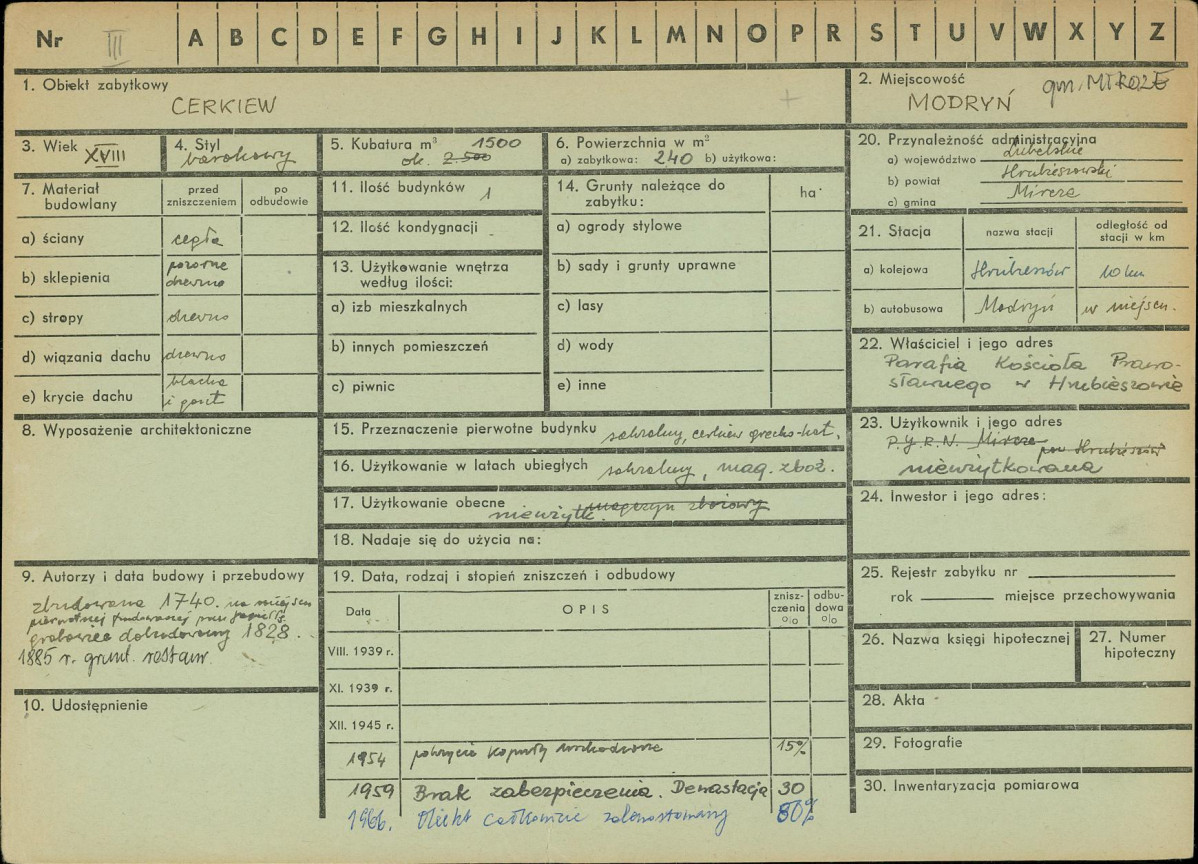 Nr III A B C D E F G H I J K L M N O P R S T U V W X Y Z
1. Obiekt zabytkowy
CERKIEW
2. Miejscowość
MODRYŃ gm. MIRCZE
3. Wiek XVIII
4. Styl
barokowy
5. Kubatura m³ 1500
ok. 2.500
6. Powierzchnia w m²
a) zabytkowa: 240 b) użytkowa:
7. Materiał budowlany
przed zniszczeniem
po odbudowie
a) ściany cegła
b) sklepienia pozorne
drewno
c) stropy drewno
d) wiązania dachu drewno
e) krycie dachu blacha
i gont
8. Wyposażenie architektoniczne
9. Autorzy i data budowy i przebudowy
zbudowana 1740. na miejscu
pierwotnej fundowanej przez
grobowiec dobudowany 1828.
1885 r. grunt. restaur.
10. Udostępnienie
11. Ilość budynków 1
12. Ilość kondygnacji
13. Użytkowanie wnętrza
według ilości:
a) izb mieszkalnych
b) innych pomieszczeń
c) piwnic
14. Grunty należące do
zabytku:
ha
a) ogrody stylowe
b) sady i grunty uprawne
c) lasy
d) wody
e) inne
15. Przeznaczenie pierwotne budynku sakralny, cerkiew grecko-kat.
16. Użytkowanie w latach ubiegłych sakralny, mag. zboż.
17. Użytkowanie obecne magazyn zbożowy
nieużytk.
18. Nadaje się do użycia na:
19. Data, rodzaj i stopień zniszczeń i odbudowy
Data
OPIS
znisz-
czenia
%
odbu-
dowa
%
VIII. 1939 r.
XI. 1939 r.
XII. 1945 r.
1954 pokrycie kopuły uszkodzone 15%
1959 Brak zabezpieczenia. Dewastacja 30
1966. Obiekt całkowicie zdewastowany 80%
20. Przynależność administracyjna
a) województwo Lubelskie
b) powiat Hrubieszowski
c) gmina Mircze
21. Stacja
nazwa stacji
odległość od
stacji w km
a) kolejowa Hrubieszów 10 km
b) autobusowa Modryń w miejsc.
22. Właściciel i jego adres
Parafia Kościoła Prawo-
sławnego w Hrubieszowie
23. Użytkownik i jego adres
P.G.R.N. Mircze
pow. Hrubieszów
nieużytkowana
24. Inwestor i jego adres:
25. Rejestr zabytku nr
rok miejsce przechowywania
26. Nazwa księgi hipotecznej
27. Numer
hipoteczny
28. Akta
29. Fotografie
30. Inwentaryzacja pomiarowa